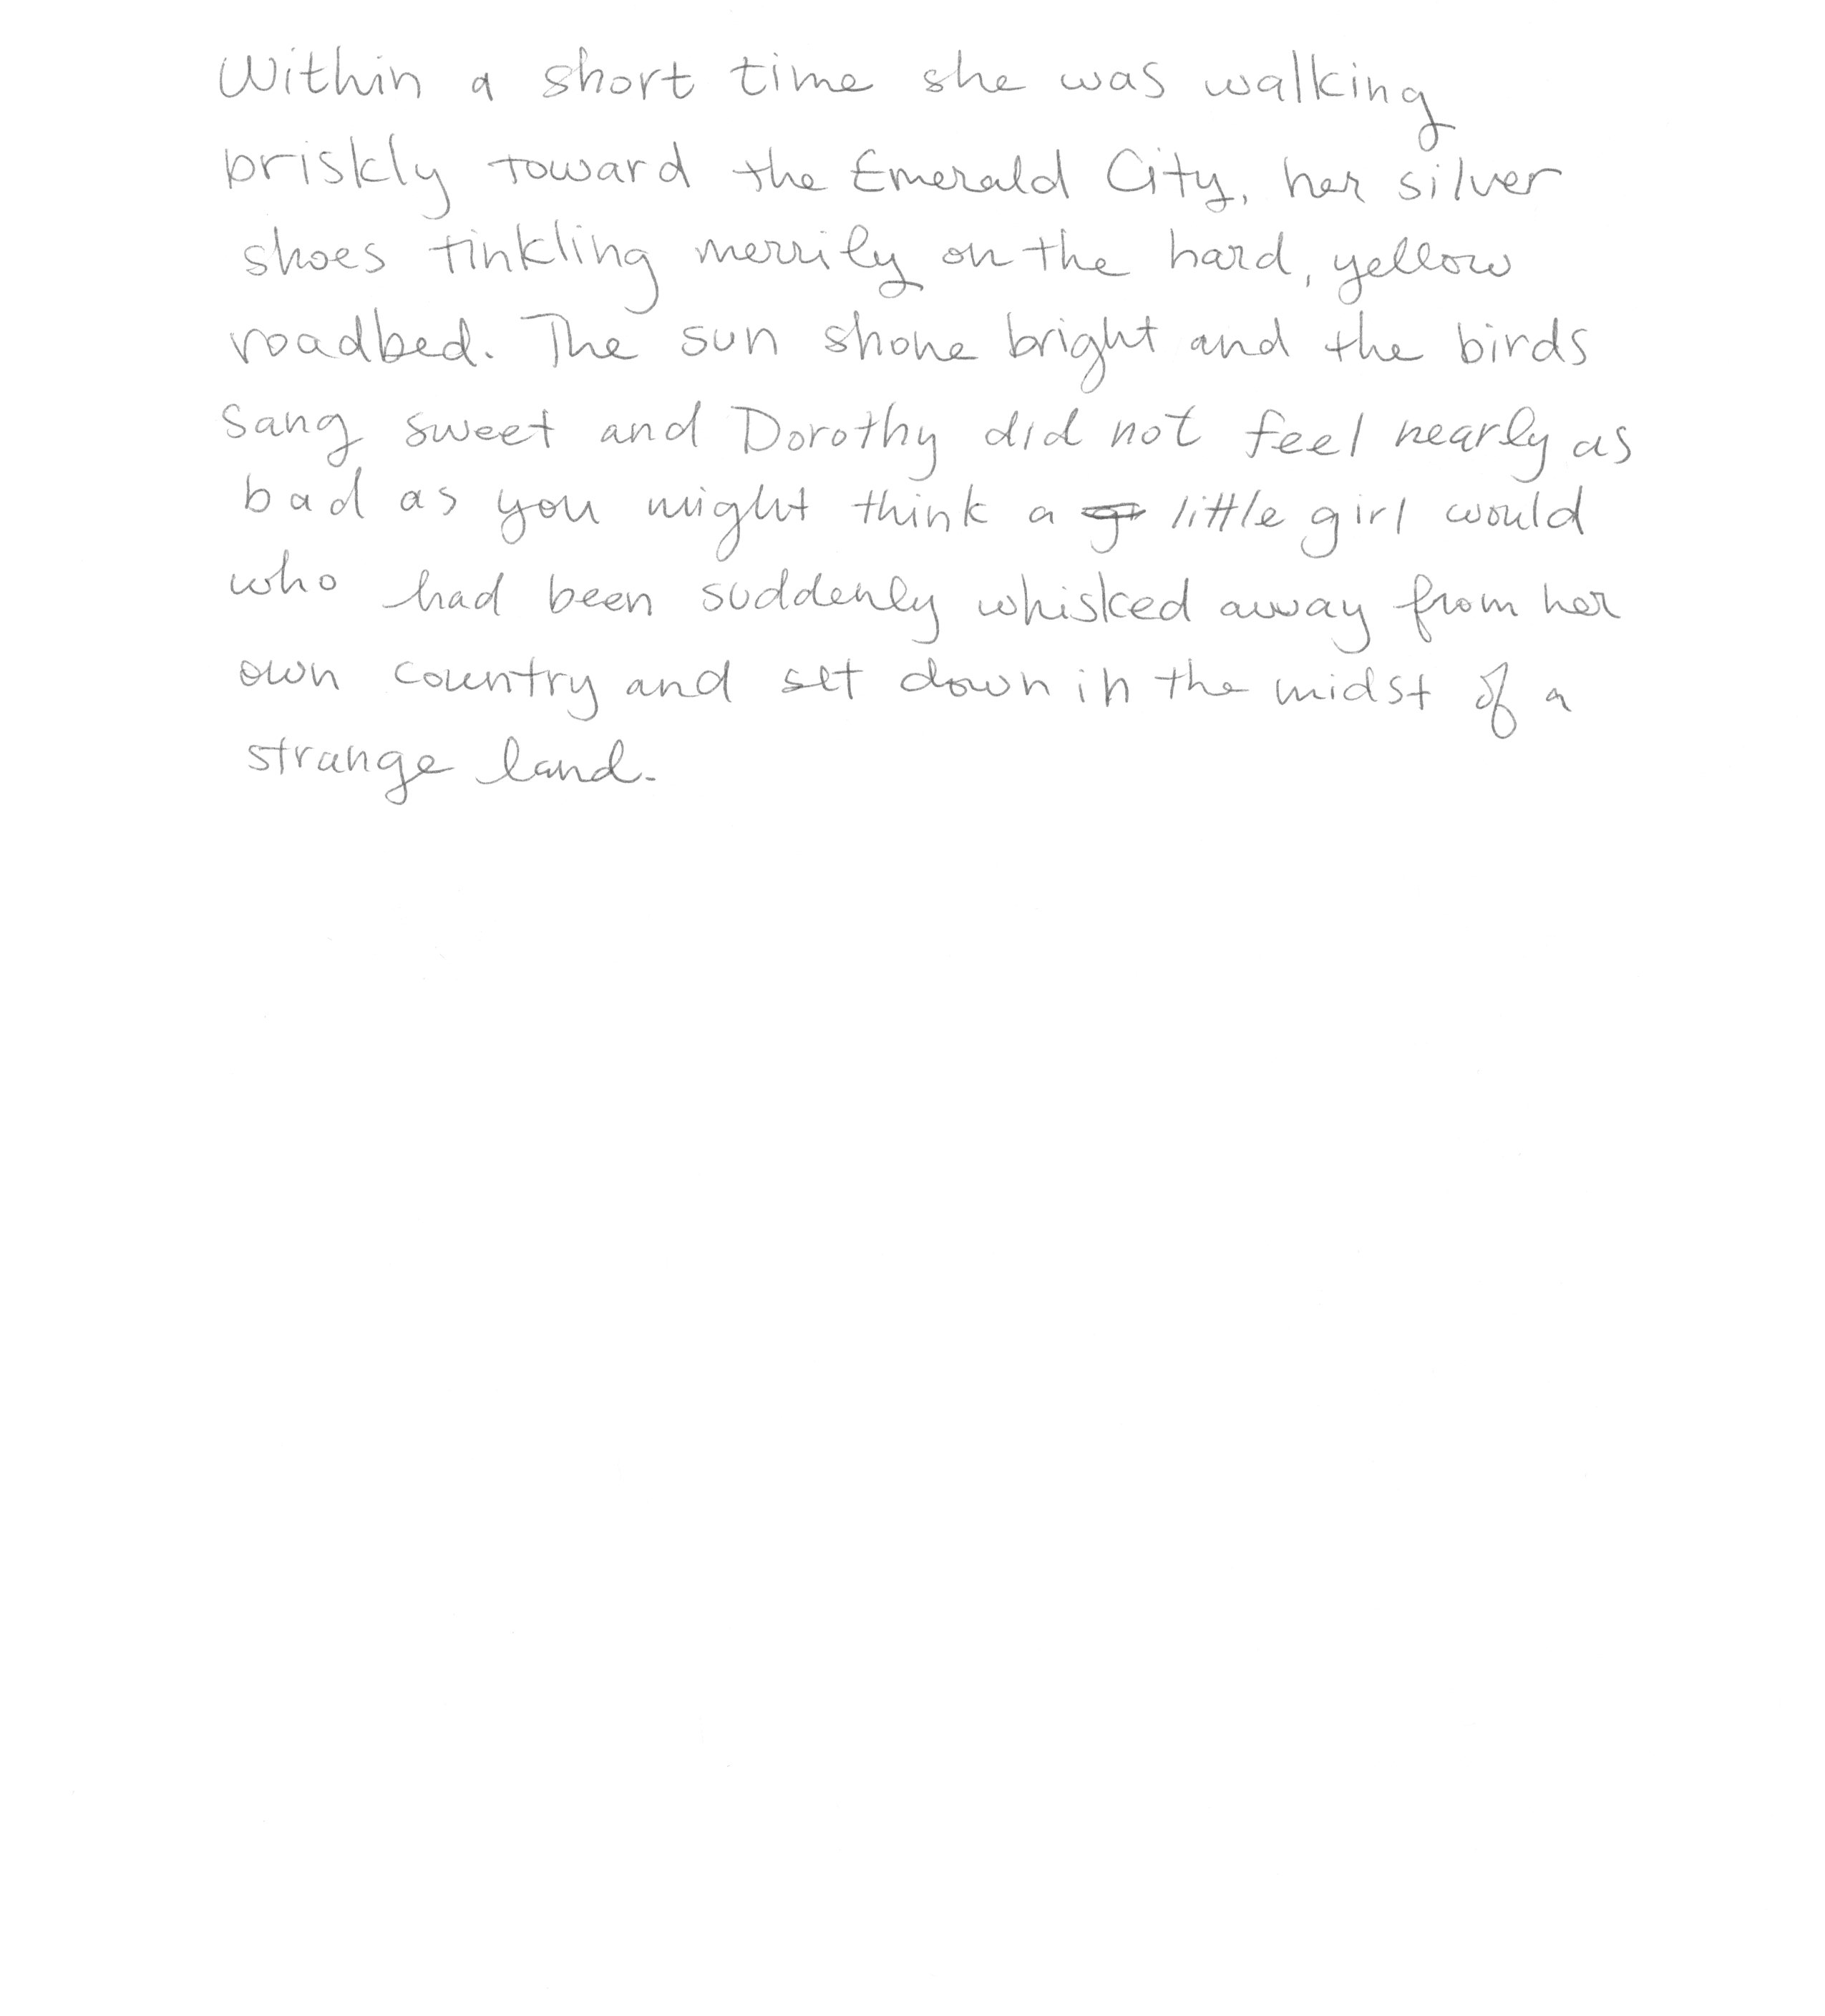 Within a short time she was walking
briskly toward the Emerald City, her silver
shoes tinkling merrily on the hard, yellow
roadbed. The sun shone bright and the birds
sang sweet and Dorothy did not feel nearly as
bad as you might think a little girl would
who had been suddenly whisked away from her
own country and set down in the midst of a
strange land.